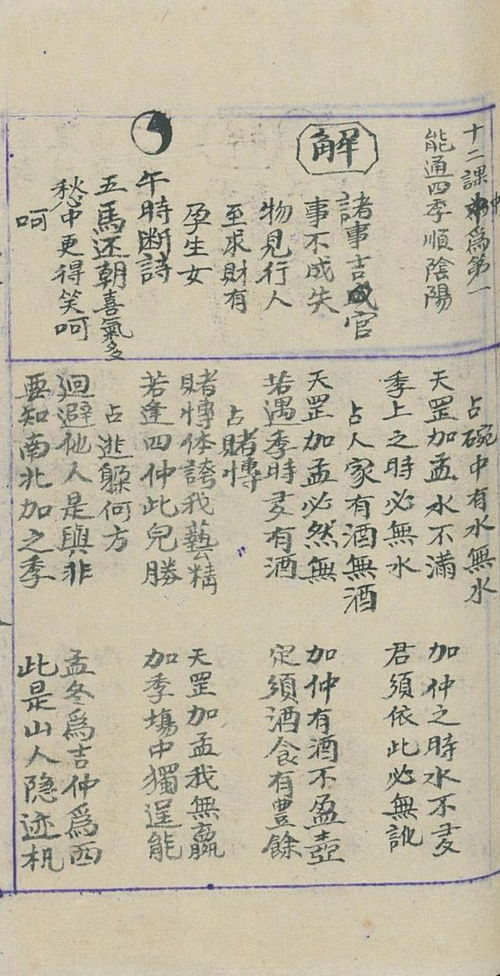 十二課中為第一
能通四季順陰陽
解
諸事吉官
事不成失
物見行人
至求財有
孕生女
午時断詩
五馬还朝喜氣多
愁中更得笑呵
呵
占碗中有水無水
天罡加孟水不滿　加仲之時水不夛
季上之時必無水　君須依此必無訛
占人家有酒無酒
天罡加孟必然無　加仲有酒不盈壺
若遇季時夛有酒　定須酒食有豊餘
占賭愽
賭愽休誇我藝精　天罡加孟我無贏
若逢四仲此兒勝　加季塲中獨逞能
占逃躲何方
廻避他人是與非　孟冬爲吉仲爲西
要知南北加之季　此是山人隐迹机